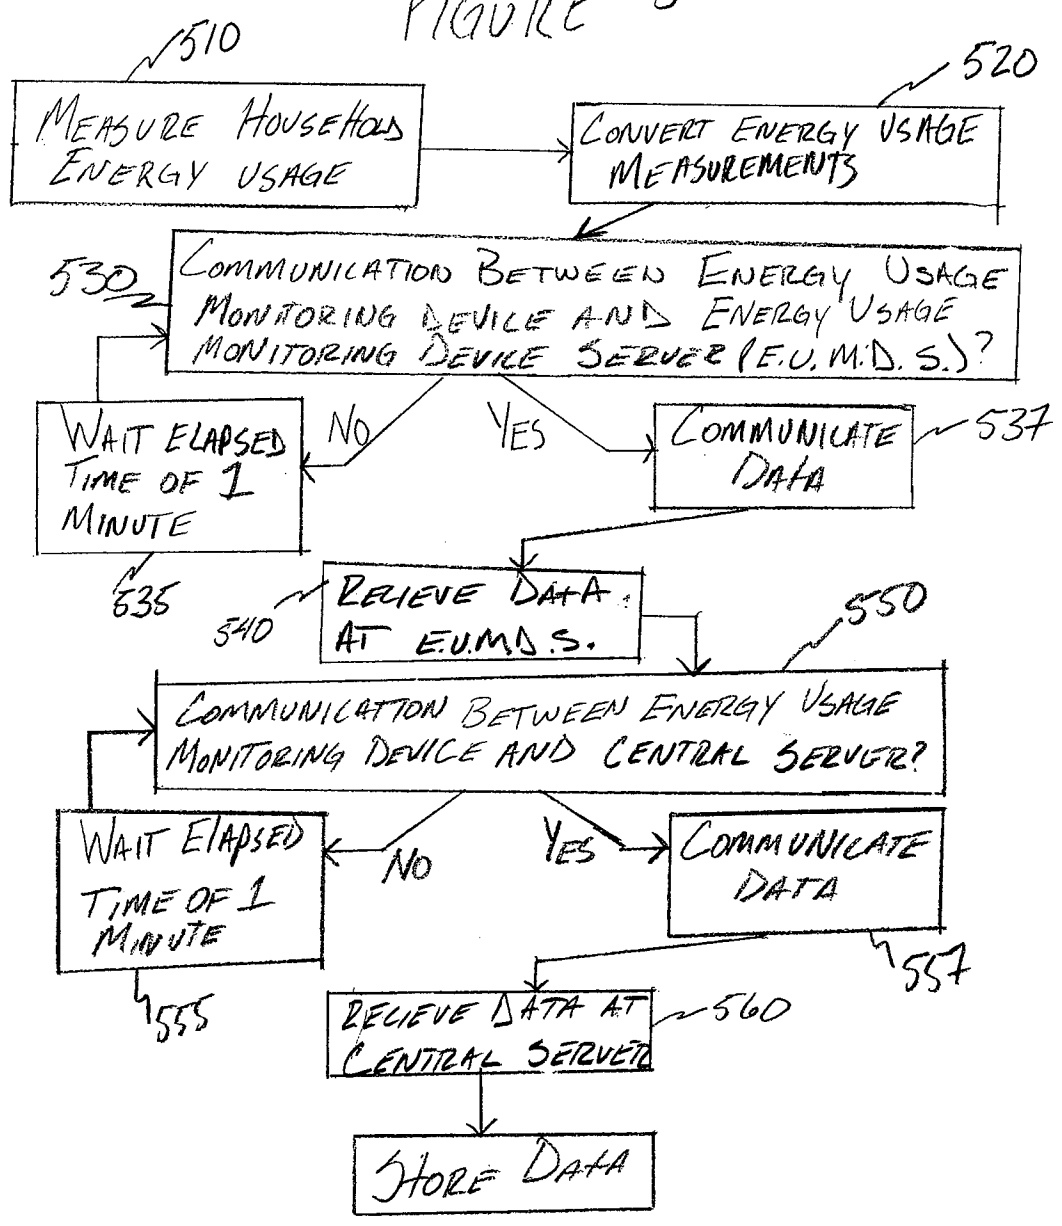 FIGURE
510
520
MEASURE HOUSEHOLD
ENERGY USAGE
CONVERT ENERGY USAGE
MEASUREMENTS
530
COMMUNICATION BETWEEN ENERGY USAGE
MONITORING DEVICE AND ENERGY USAGE
MONITORING DEVICE SERVER (E.U.M.D.S.)?
NO
YES
WAIT ELAPSED
TIME OF 1
MINUTE
535
COMMUNICATE
DATA
537
540
RECIEVE DATA
AT E.U.M.D.S.
550
COMMUNICATION BETWEEN ENERGY USAGE
MONITORING DEVICE AND CENTRAL SERVER?
NO
YES
WAIT ELAPSED
TIME OF 1
MINUTE
555
COMMUNICATE
DATA
557
RECIEVE DATA AT
CENTRAL SERVER
560
STORE DATA